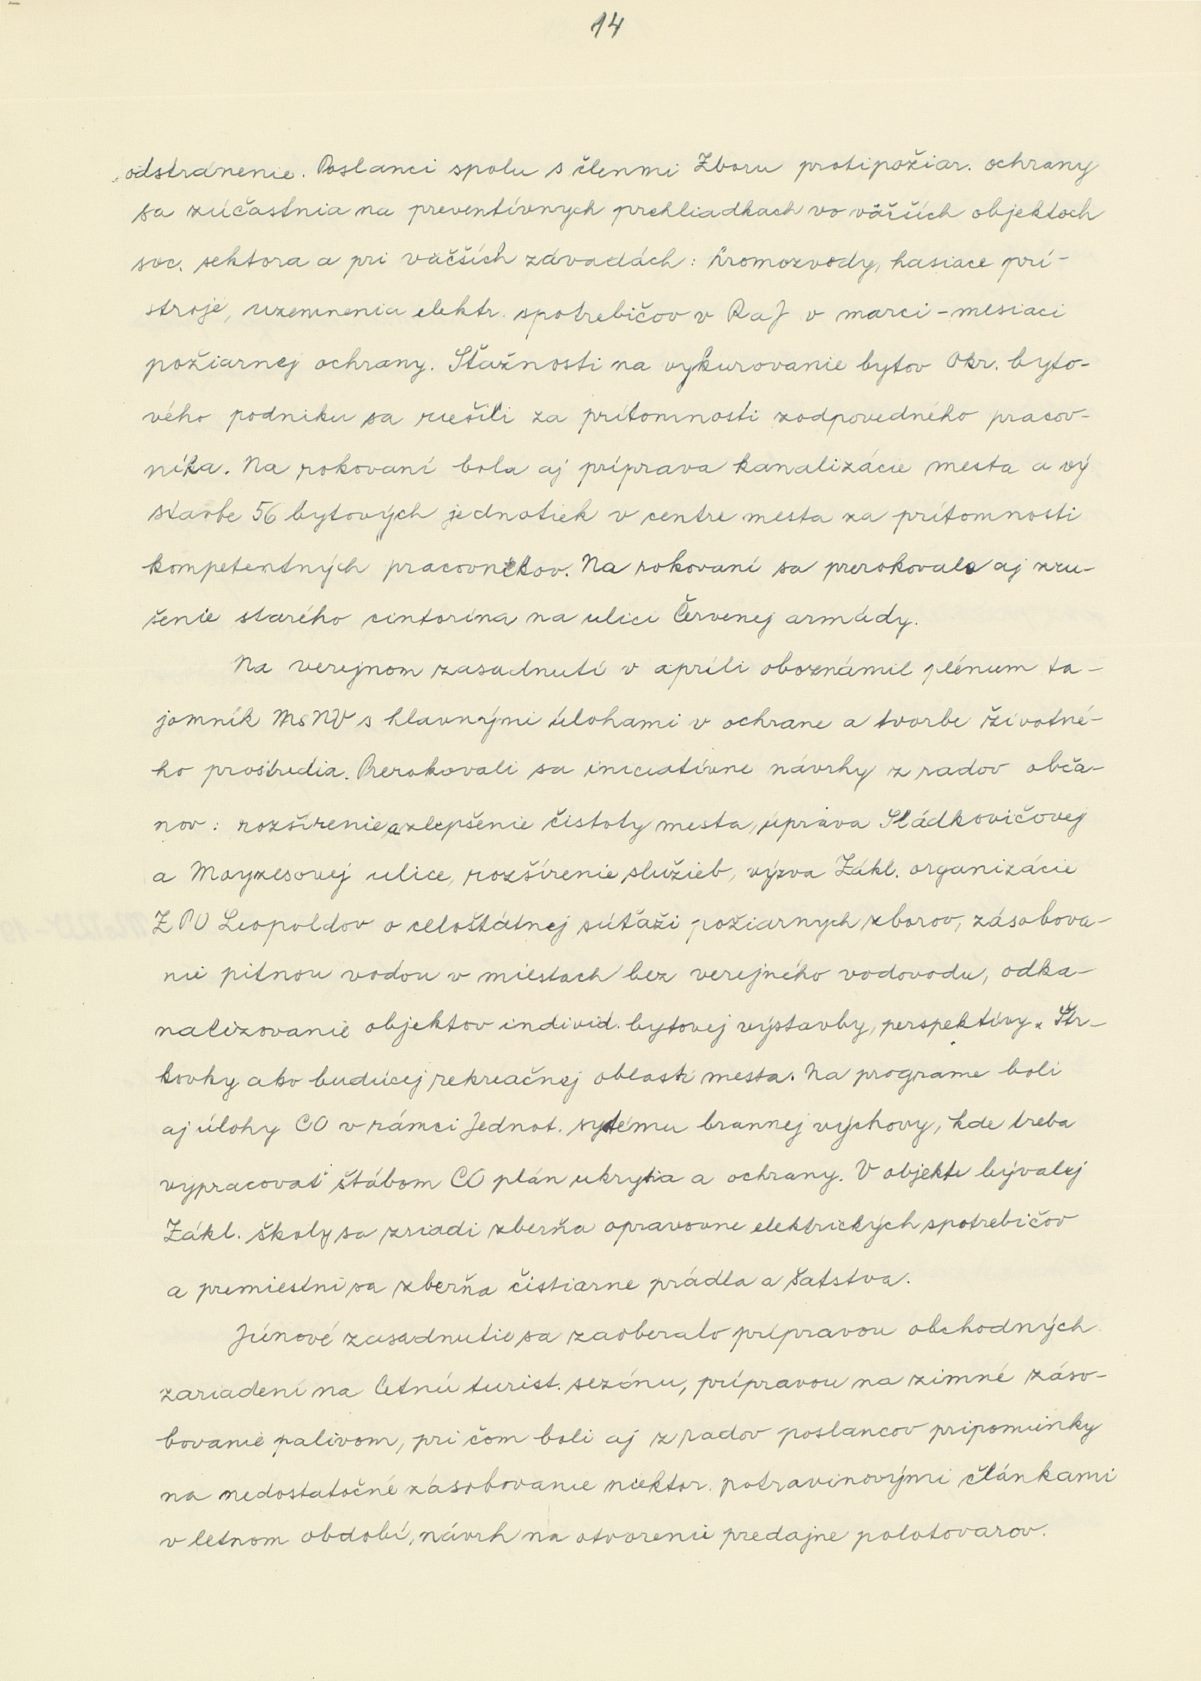 14
odstránenie. Poslanci spolu s členmi Zboru protipožiar. ochrany
sa zúčastnia na preventívnych prehliadkach vo väčších objektoch
soc. sektora a pri väčších závadách: hromozvody, hasiace prí-
stroje, uzemnenia elektr. spotrebičov v RaJ v marci - mesiaci
požiarnej ochrany. Sťažnosti na vykurovanie bytov Okr. byto-
vého podniku sa riešili za prítomnosti zodpovedného pracov-
níka. Na rokovaní bola aj príprava kanalizácie mesta a vý
stavbe 56 bytových jednotiek v centre mesta za prítomnosti
kompetentných pracovníkov. Na rokovaní sa prerokovalo aj zru-
šenie starého cintorína na ulici Červenej armády.
Na verejnom zasadnutí v apríli oboznámil plénum ta-
jomník MsNV s hlavnými úlohami v ochrane a tvorbe životné-
ho prostredia. Prerokovali sa iniciatívne návrhy z radov obča-
nov: rozšírenie a zlepšenie čistoty mesta, úprava Sládkovičovej
a Moyzesovej ulice, rozšírenie služieb, výzva Zákl. organizácie
ZPO Leopoldov o celoštátnej súťaži požiarnych zborov, zásobova-
nie pitnou vodou v miestach bez verejného vodovodu, odka-
nalizovanie objektov individ. bytovej výstavby, perspektívy Štr-
kovky ako budúcej rekreačnej oblasti mesta. Na programe boli
aj úlohy CO v rámci Jednot. sytému brannej výchovy, kde treba
vypracovať štábom CO plán ukrytia a ochrany. V objekte bývalej
Zákl. školy sa zriadi zberňa opravovne elektrických spotrebičov
a premiestni sa zberňa čistiarne prádla a šatstva.
Júnové zasadnutie sa zaoberalo prípravou obchodných
zariadení na letnú turist. sezónu, prípravou na zimné záso-
bovanie palivom, pri čom boli aj z radov poslancov pripomienky
na nedostatočné zásobovanie niektor. potravinovými článkami
v letnom období, návrh na otvorenie predajne polotovarov.